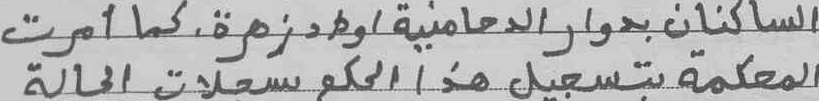 الساكنان بدوار الدحامنية اولاد زهرة، كما أمرت
المحكمة بتسجيل هذا الحكم بسجلات الحالة